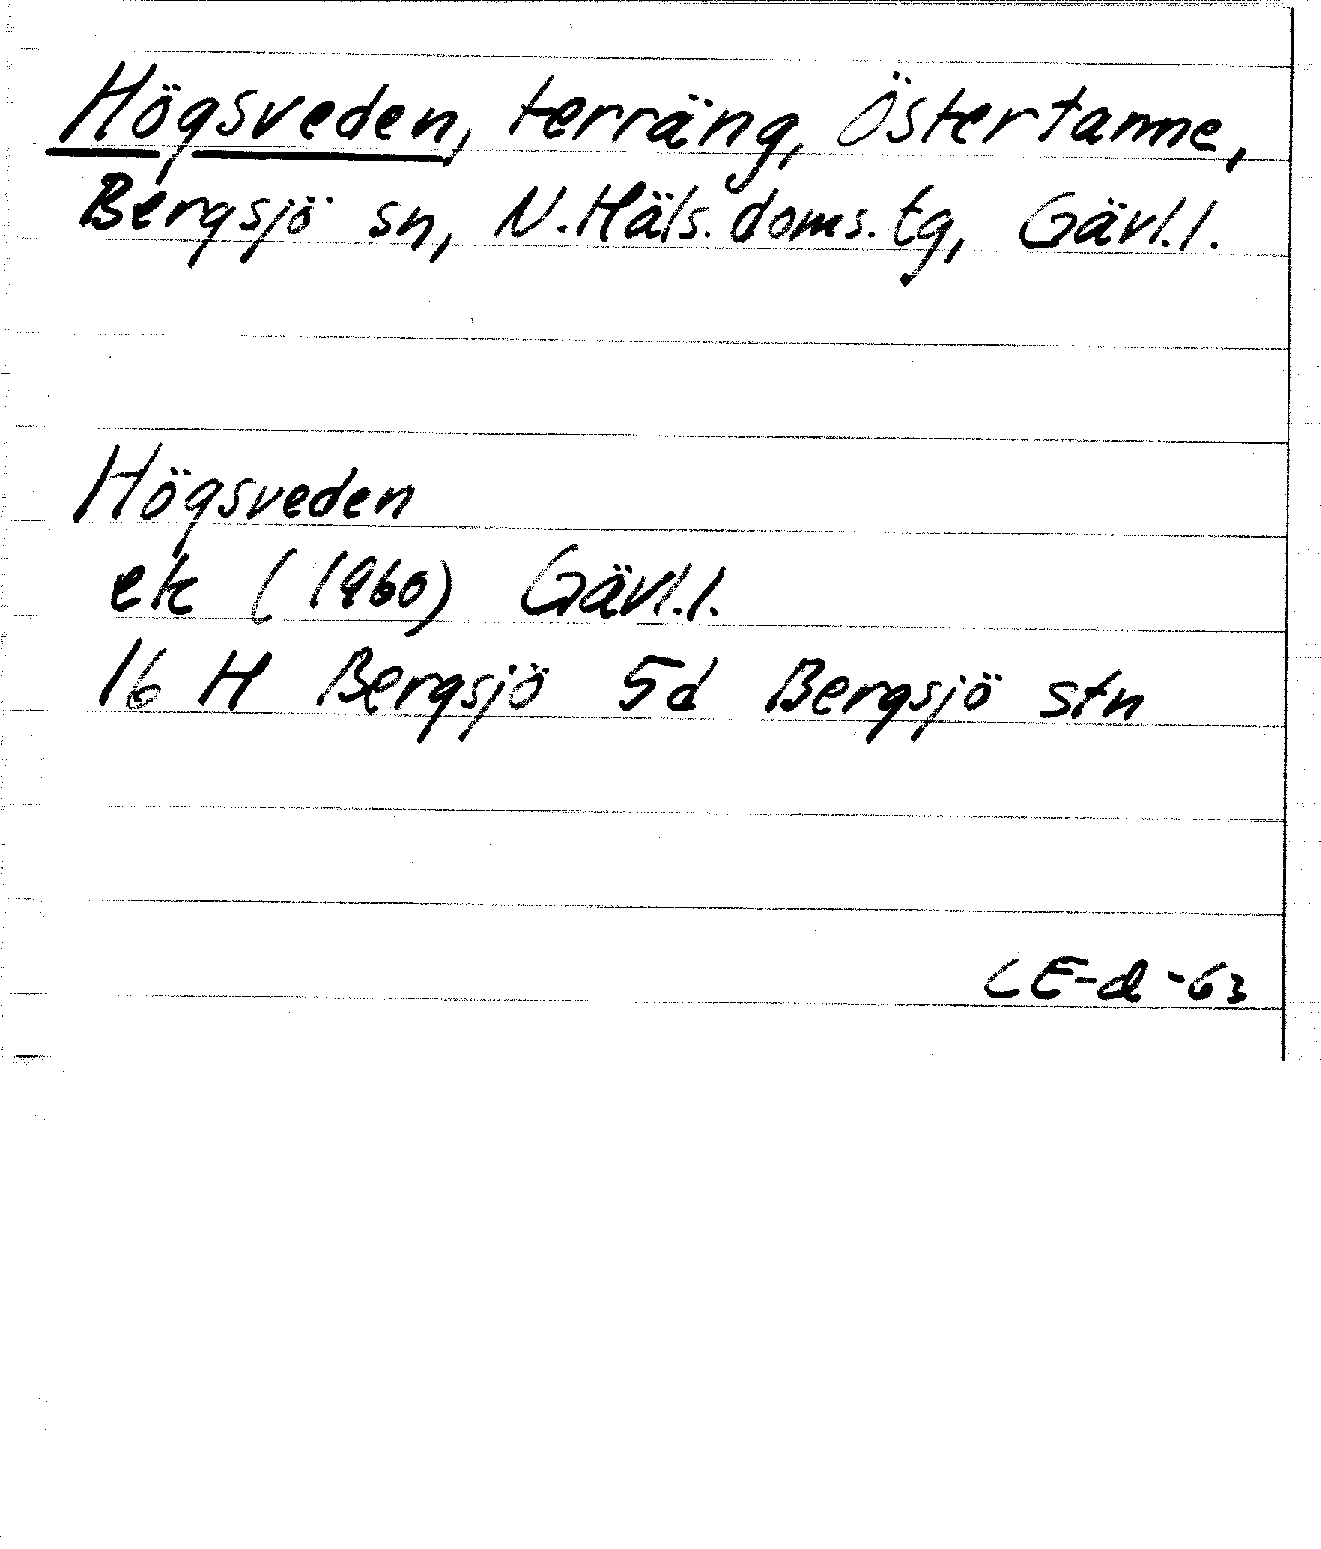 Högsveden, terräng, Östertanne,
Bergsjö sn, N.Häls.doms.tg, Gävl.l.
Högsveden
ek (1960) Gävl.l.
16 H Bergsjö 5d Bergsjö stn
CE-d-63